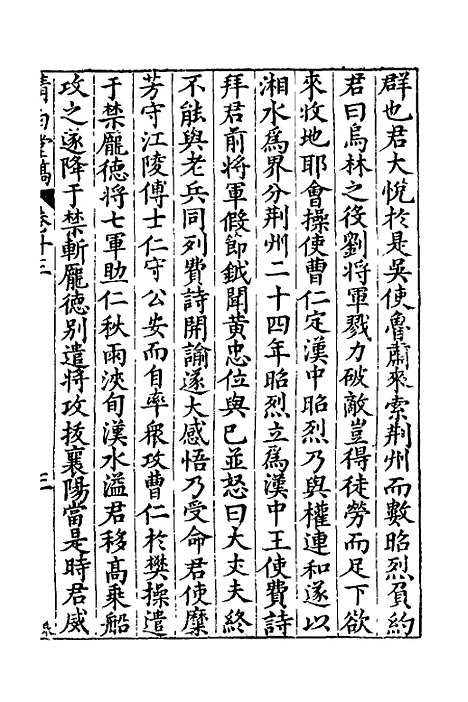 群也君大悅於是吳使魯肅來索荆州而數昭烈負約
君曰烏林之役劉將軍戮力破敵豈得徒勞而足下欲
來收地耶會操使曹仁定漢中昭烈乃與權連和遂以
湘水爲界分荆州二十四年昭烈立爲漢中王使費詩
拜君前將軍假節鉞聞黃忠位與已並怒曰大丈夫終
不能與老兵同列費詩開諭遂大感悟乃受命君使糜
芳守江陵傅士仁守公安而自率衆攻曹仁於樊操遣
于禁龐德將七軍助仁秋雨浹旬漢水溢君移高乘船
攻之遂降于禁斬龐德别遣將攻拔襄陽當是時君威
清白堂稿 卷十三 三